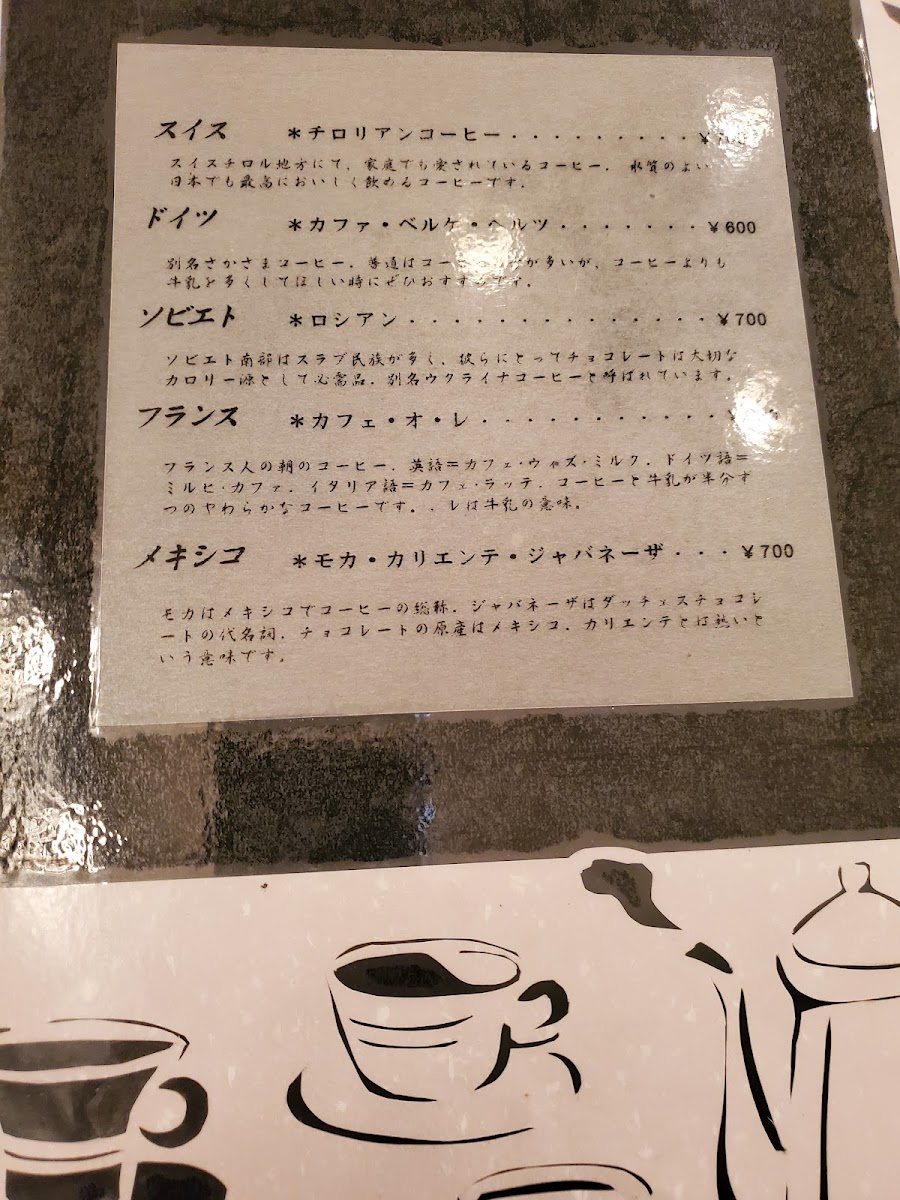 スイス ＊チロリアンコーヒー・・・・・・・・・￥
スイスチロル地方にて、家庭でも愛されているコーヒー． 水質のよい
日本でも最高においしく飲めるコーヒーです。
ドイツ ＊カファ・ベルケ・ヘルツ・・・・・・・￥600
別名さかさまコーヒー．普通はコーヒーが多いが、コーヒーよりも
牛乳を多くしてほしい時にぜひおすすめです。
ソビエト ＊ロシアン・・・・・・・・・・・・・・￥700
ソビエト南部はスラブ民族が多く、彼らにとってチョコレートは大切な
カロリー源として必需品．別名ウクライナコーヒーと呼ばれています。
フランス ＊カフェ・オ・レ・・・・・・・・・・・・
フランス人の朝のコーヒー．英語＝カフェ・ウィズ・ミルク．ドイツ語＝
ミルヒ・カファ．イタリア語＝カフェ・ラッテ．コーヒーと牛乳が半分ず
つのやわらかなコーヒーです。．レは牛乳の意味。
メキシコ ＊モカ・カリエンテ・ジャバネーザ・・・￥700
モカはメキシコでコーヒーの総称．ジャバネーザはダッチェスチョコレ
ートの代名詞．チョコレートの原産はメキシコ．カリエンテとは熱いと
いう意味です。